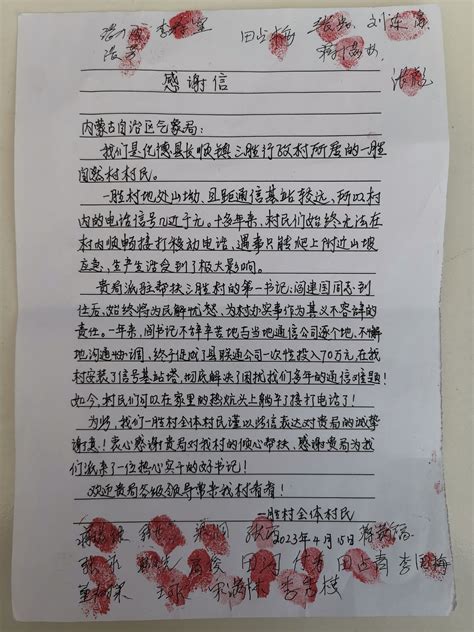 田占梅
感谢信
内蒙古自治区气象局:
我们是化德县长顺镇三胜行政村所属的一胜
自然村村民。
一胜村地处山坳,且距通信基站较远,所以村
内的电话信号几近于无。十多年来,村民们始终无法在
村内顺畅接打移动电话,遇事只能爬上附近山坡
应急,生产生活受到了极大影响。
贵局派驻帮扶三胜村的第一书记:阎建国同志到
任后,始终将为民解忧愁、为村办实事作为其义不容辞的
责任。一年来,阎书记不辞辛苦地与当地通信公司逐个地、不懈
地沟通协调,终于促成了县联通公司一次性投入70万元,在我
村安装了信号基站塔,彻底解决了困扰我们多年的通信难题!
如今,村民们可以在家里的热炕头上躺平了接打电话了!
为此,我们一胜村全体村民谨以此信表达对贵局的诚挚
谢意!衷心感谢贵局对我村的倾心帮扶、感谢贵局为我
们派来了一位热心实干的好书记!
欢迎贵局各级领导常来我村看看!
一胜村全体村民
2023年4月15日
田占青 李国梅